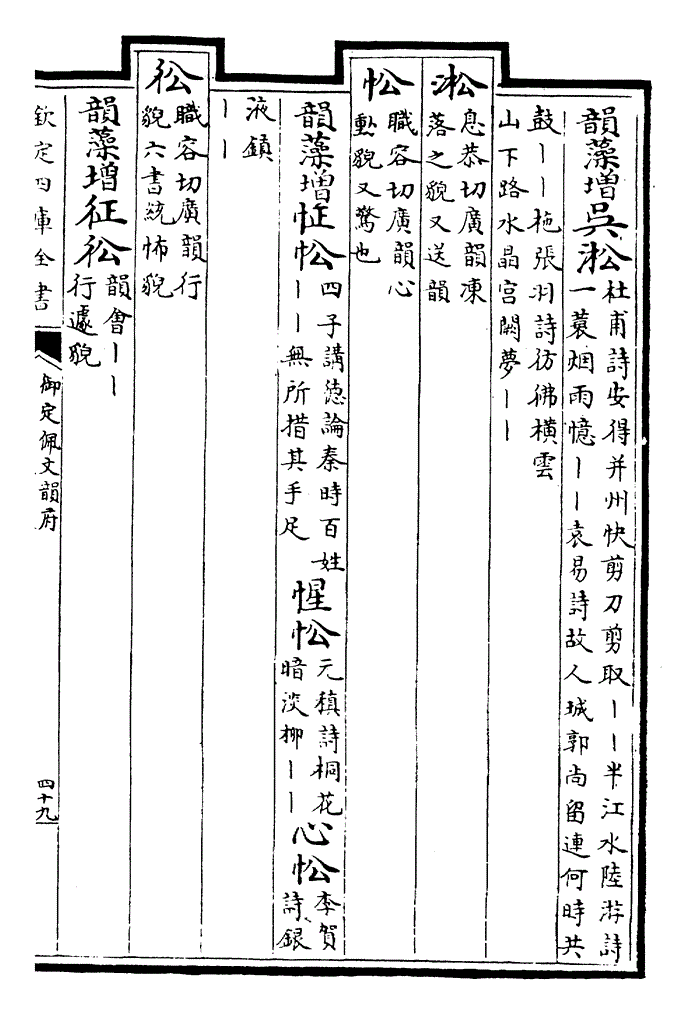 韻藻增吳淞杜甫詩安得并州快剪刀剪取丨丨半江水陸游詩
一蓑烟雨憶丨丨袁易詩故人城郭尚留連何時共
鼓丨丨柂張羽詩彷彿橫雲
山下路水晶宮闕夢丨丨
淞息恭切廣韻凍
落之貌又送韻
忪職容切廣韻心
動貌又驚也
韻藻增怔忪四子講德論秦時百姓
丨丨無所措其手足
惺忪元稹詩桐花
暗淡柳丨丨
心忪李賀
詩銀
液鎮
丨丨
彸職容切廣韻行
貌六書統怖貌
韻藻增征彸韻會丨丨
行遽貌
欽定四庫全書
御定佩文韻府
四十九